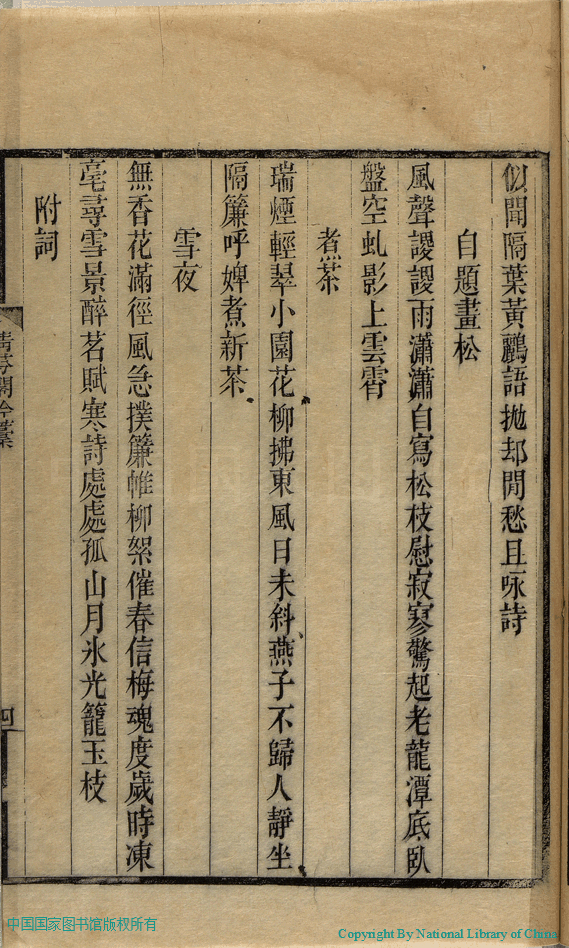 似聞隔葉黃鸝語抛却閒愁且咏詩
自題畫松
風聲謖謖雨瀟瀟自寫松枝慰寂寥驚起老龍潭底臥
盤空虬影上雲霄
煮茶
瑞煙輕翠小園花柳拂東風日未斜燕子不歸人靜坐
隔簾呼婢煮新茶
雪夜
無香花滿徑風急撲簾帷柳絮催春信梅魂度歲時凍
毫尋雪景醉茗賦寒詩處處孤山月氷光籠玉枝
附詞
四
中国国家图书馆版权所有
Copyright By National Library of China